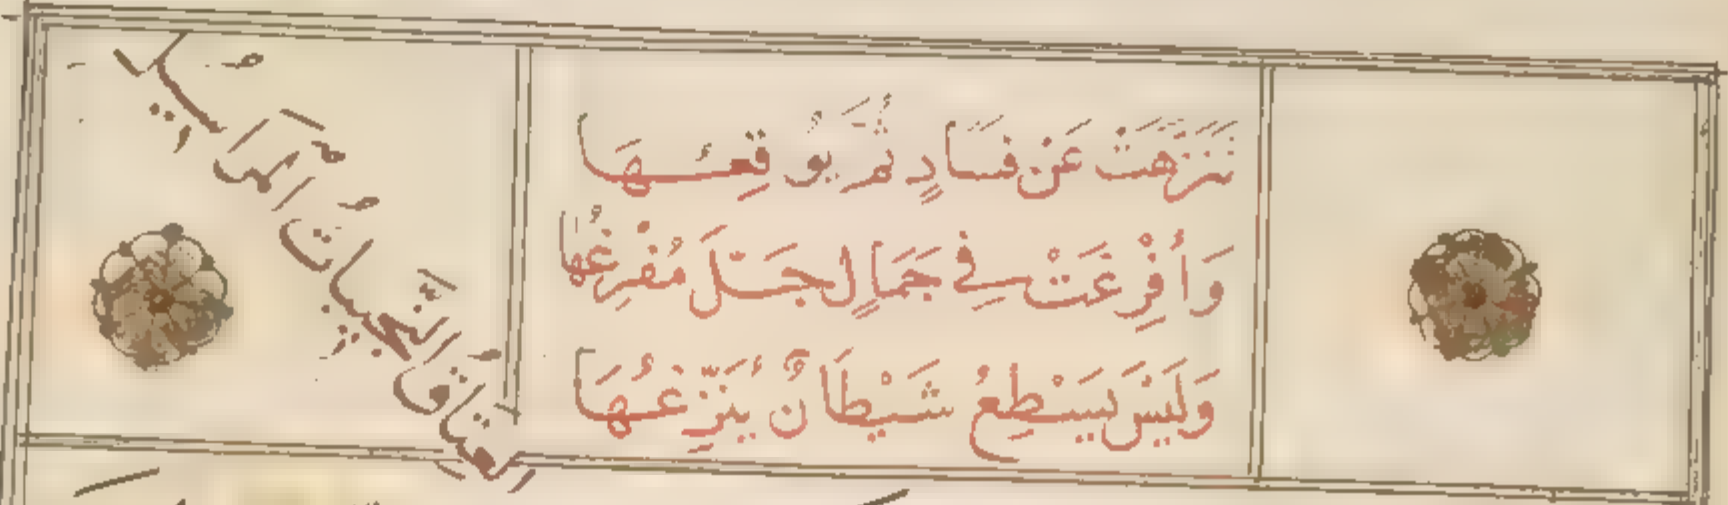 تَنَزَّهَتْ عَنْ فَسَادٍ ثُمَّ يُوقِعُهَا
وَأُفْرِغَتْ فِي جَمَالٍ جَلَّ مُفْرِغُهَا
وَلَيْسَ يَسْطِعُ شَيْطَانٌ يُنَزِّغُهَا
العتاق النَّجيباتُ المراسيل